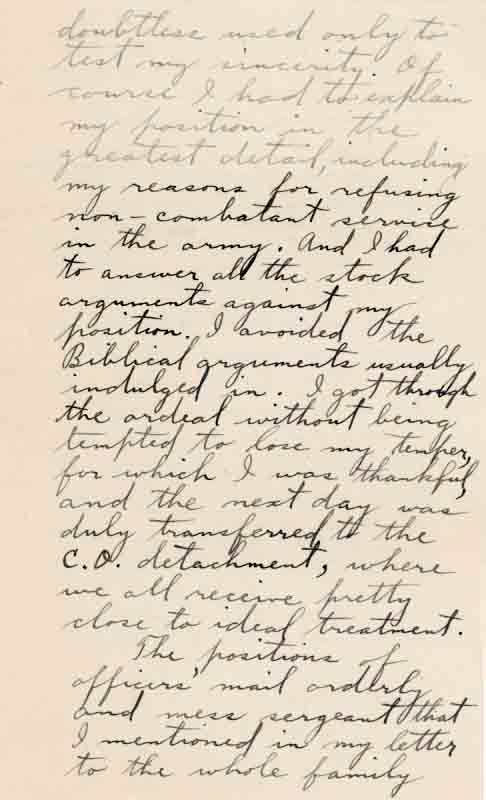 doubtless used only to
test my sincerity. Of
course I had to explain
my position in the
greatest detail, including
my reasons for refusing
non-combatant service
in the army. And I had
to answer all the stock
arguments against my
position. I avoided the
Biblical arguments usually
indulged in. I got through
the ordeal without being
tempted to lose my temper,
for which I was thankful,
and the next day was
duly transferred to the
C.O. detachment, where
we all receive pretty
close to ideal treatment.
The positions of
officers' mail orderly
and mess sergeant that
I mentioned in my letter
to the whole family